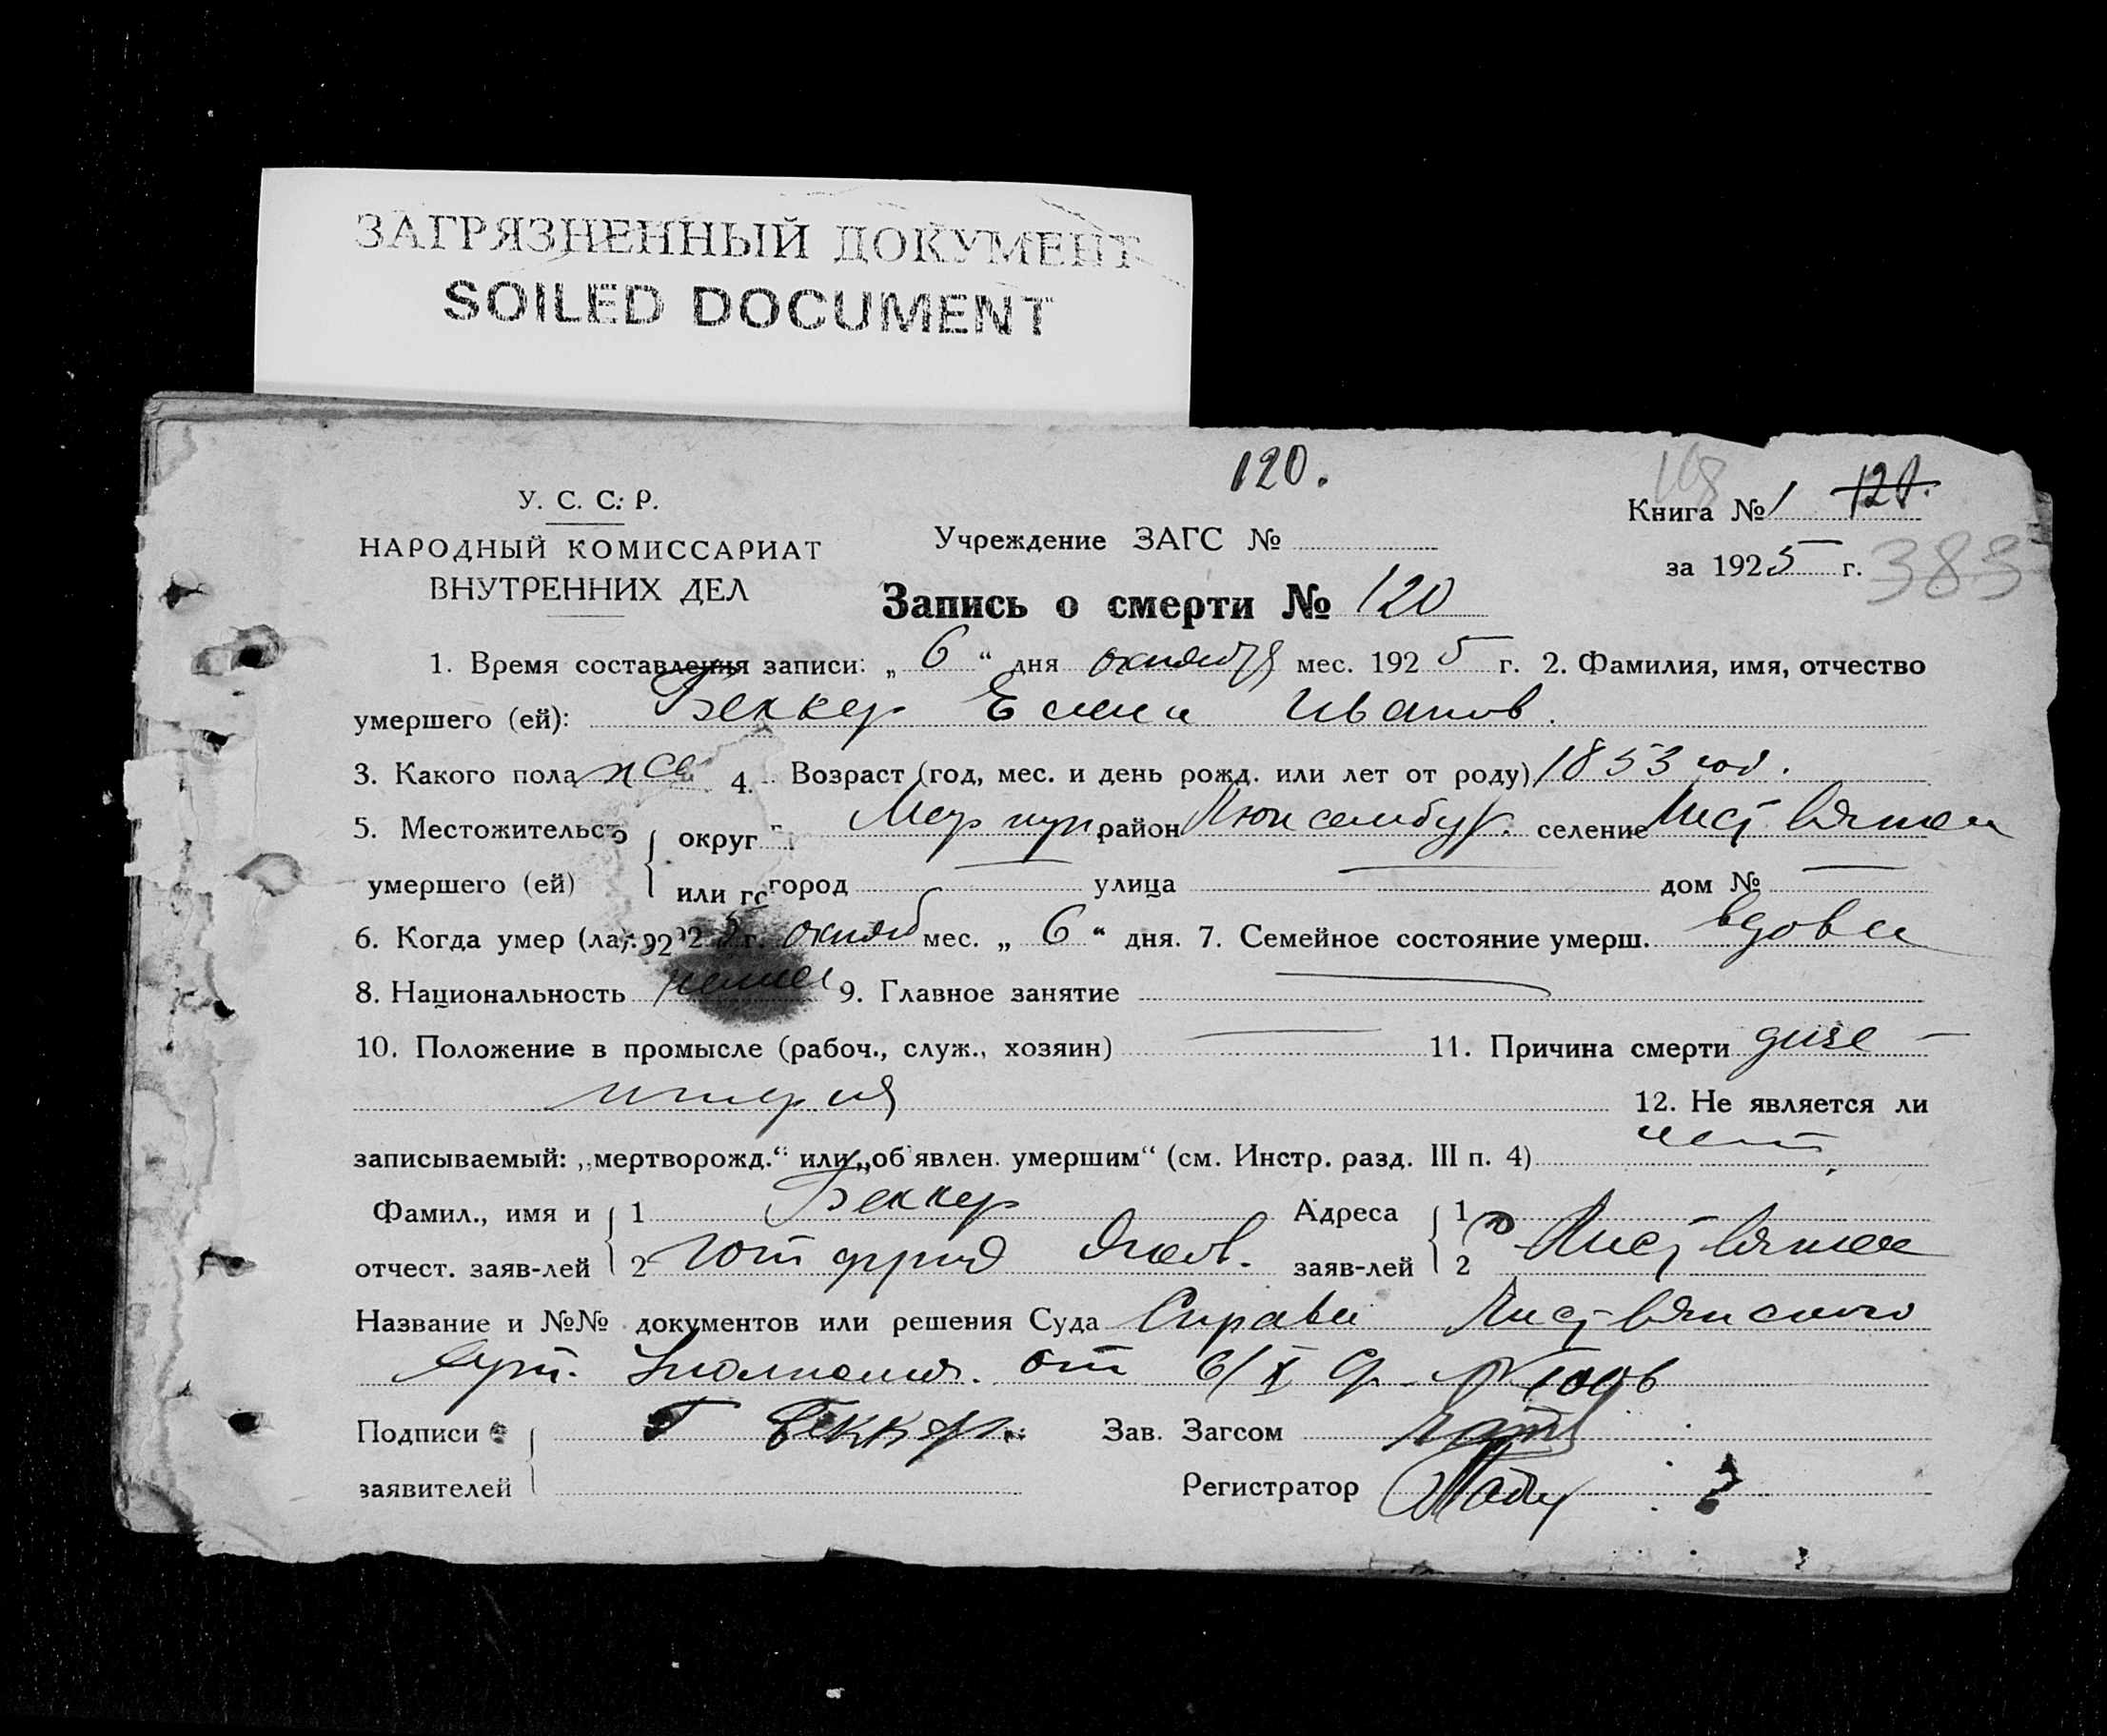 ЗАГРЯЗНЕННЫЙ ДОКУМЕНТ
SOILED DOCUMENT
120.
108
У. С. С. Р.
Книга № 1 121.
НАРОДНЫЙ КОМИССАРИАТ
ВНУТРЕННИХ ДЕЛ
Учреждение ЗАГС №
за 1925 г. 383
Запись о смерти № 120
1. Время составления записи: „ 6 “ дня октября мес. 1925 г. 2. Фамилия, имя, отчество
умершего (ей): Беккер Елена Иванов.
3. Какого пола жен 4. Возраст (год, мес. и день рожд. или лет от роду) 1853 год.
5. Местожительство округ Мариуп. район Люксембур. селение
умершего (ей) или город улица дом №
6. Когда умер (ла) 1925 г. октяб мес. „ 6 “ дня. 7. Семейное состояние умерш. вдова
8. Национальность немка 9. Главное занятие
10. Положение в промысле (рабоч., служ., хозяин) 11. Причина смерти дизен-
терия 12. Не является ли
записываемый: „мертворожд.“ или „об'явлен. умершим“ (см. Инстр. разд. III п. 4) нет
Фамил., имя и 1 Беккер Адреса 1
отчест. заяв-лей 2 Готфрид Яковл. заяв-лей 2
Название и №№ документов или решения Суда Справка
от 6/X
Подписи Г Беккер Зав. Загсом
заявителей Регистратор